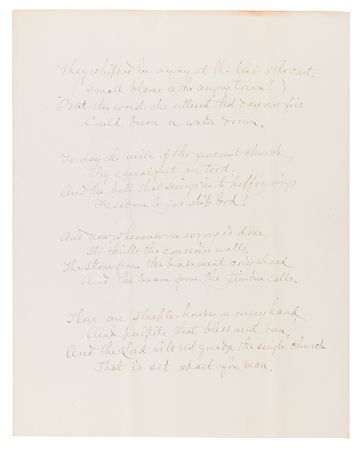 They whipped her away at the tail o' the cart;
(Small blame to the angry town!)
But the word she uttered that day nor fire
Could burn or water drown.
To-day the aisles of the ancient church
By equal feet are trod;
And the bell that swings in its belfry rings
Freedom to worship God!
And now whenever a wrong is done
It thrills the conscious walls;
The stone from the basement cries aloud
And the beam from the timber calls.
There are steeple-houses on every hand,
And pulpits that bless and ban,
And the Lord will not grudge the single church
That is set apart for man.